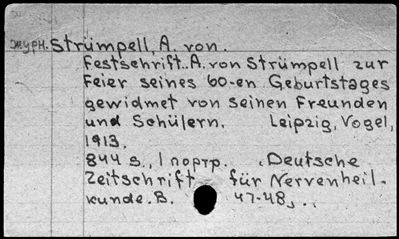 журн. Strümpell, A. von.
Festschrift A. von Strümpell zur
Feier seines 60-en Geburtstages
gewidmet von seinen Freunden
und Schülern. Leipzig, Vogel,
1913.
844 s., 1 портр. Deutsche
Zeitschrift für Nervenheil-
kunde. B. 47-48,..